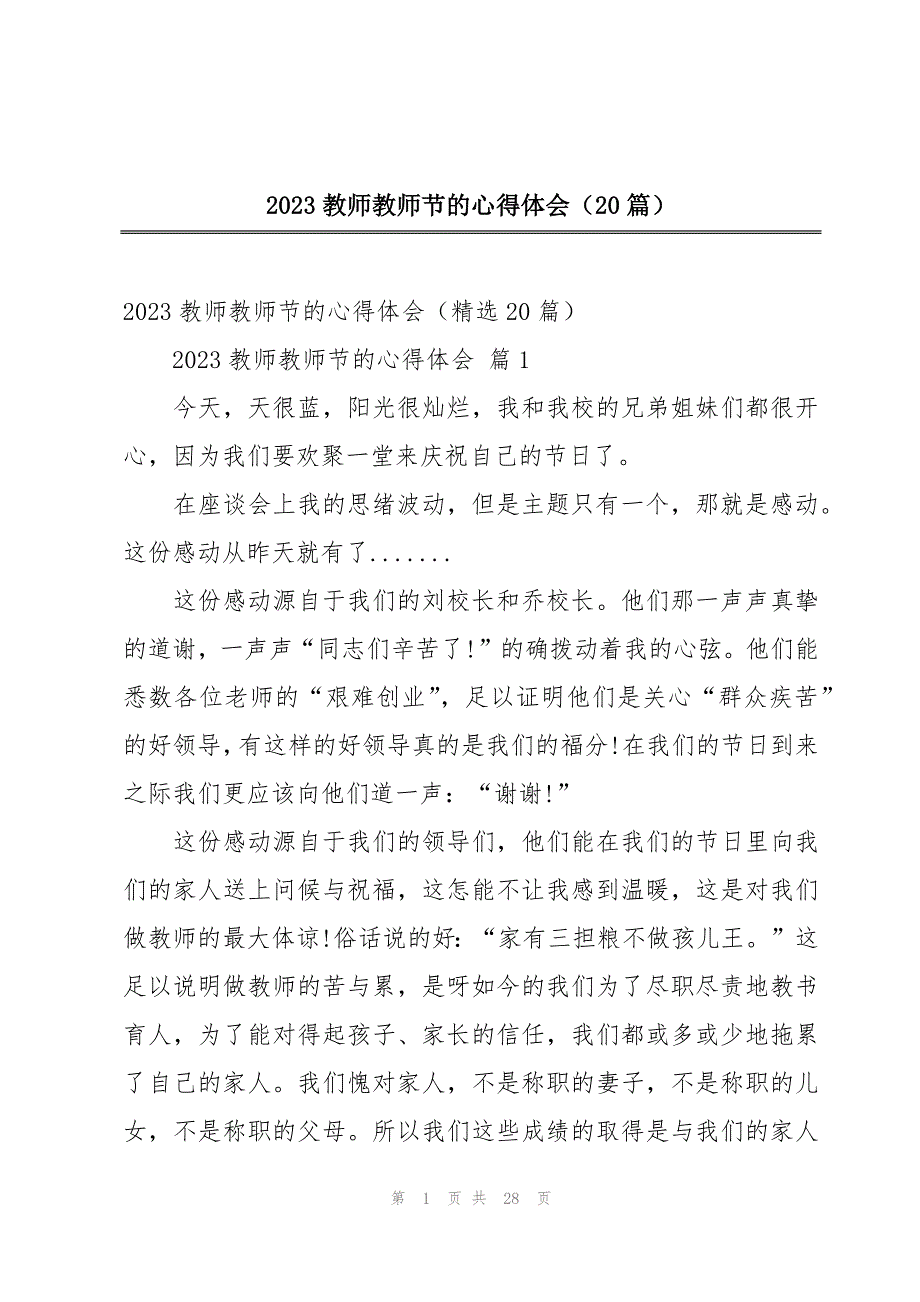 2023教师教师节的心得体会（20篇）
2023教师教师节的心得体会（精选20篇）
2023教师教师节的心得体会 篇1
今天，天很蓝，阳光很灿烂，我和我校的兄弟姐妹们都很开
心，因为我们要欢聚一堂来庆祝自己的节日了。
在座谈会上我的思绪波动，但是主题只有一个，那就是感动。
这份感动从昨天就有了.......
这份感动源自于我们的刘校长和乔校长。他们那一声声真挚
的道谢，一声声“同志们辛苦了!”的确拨动着我的心弦。他们能
悉数各位老师的“艰难创业”，足以证明他们是关心“群众疾苦”
的好领导，有这样的好领导真的是我们的福分!在我们的节日到来
之际我们更应该向他们道一声：“谢谢!”
这份感动源自于我们的领导们，他们能在我们的节日里向我
们的家人送上问候与祝福，这怎能不让我感到温暖，这是对我们
做教师的最大体谅!俗话说的好：“家有三担粮不做孩儿王。”这
足以说明做教师的苦与累，是呀如今的我们为了尽职尽责地教书
育人，为了能对得起孩子、家长的信任，我们都或多或少地拖累
了自己的家人。我们愧对家人，不是称职的妻子，不是称职的儿
女，不是称职的父母。所以我们这些成绩的取得是与我们的家人
第 1 页 共 28 页